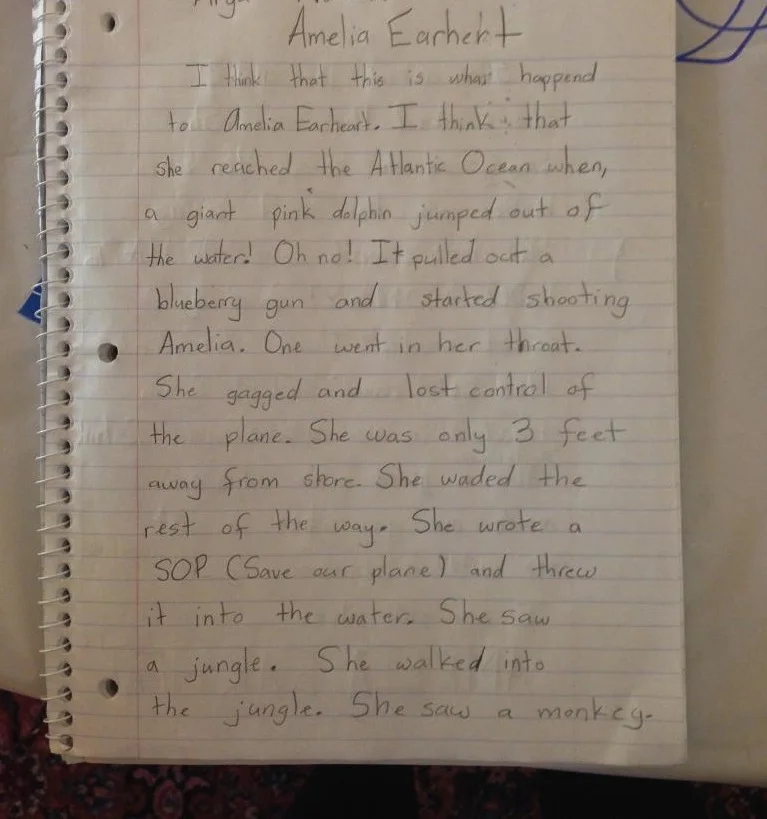 Amelia Earhert
I think that this is what happend
to Amelia Earheart. I think that
she reached the Atlantic Ocean when,
a giant pink dolphin jumped out of
the water! Oh no! It pulled out a
blueberry gun and started shooting
Amelia. One went in her throat.
She gagged and lost control of
the plane. She was only 3 feet
away from shore. She waded the
rest of the way. She wrote a
SOP (Save our plane) and threw
it into the water. She saw
a jungle. She walked into
the jungle. She saw a monkey.